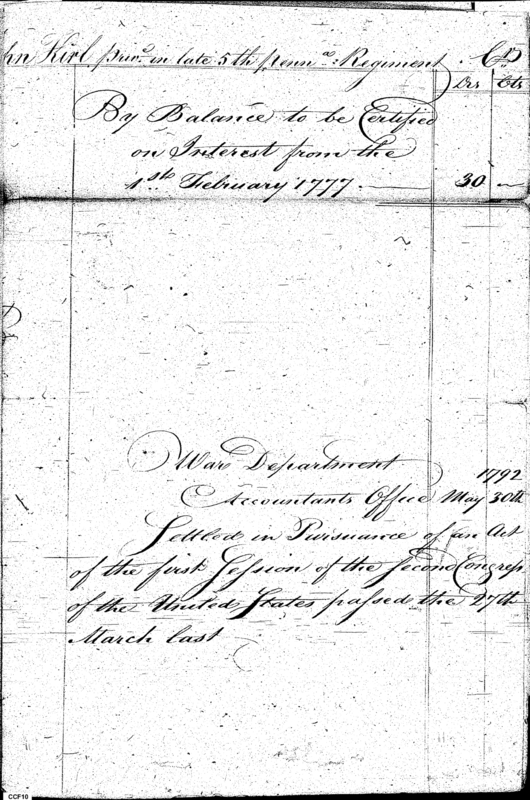 hn Kirl priv.ᵉ in late 5th penn.ᵃ Regiment. Cr
Drs Cts
By Balance to be Certified
on Interest from the
1st February 1777 30
War Department
1792
Accountants Office May 30th
Settled in Pursuance of an Act
of the first Session of the second Congress
of the United States passed the 27th
March last
CCF10